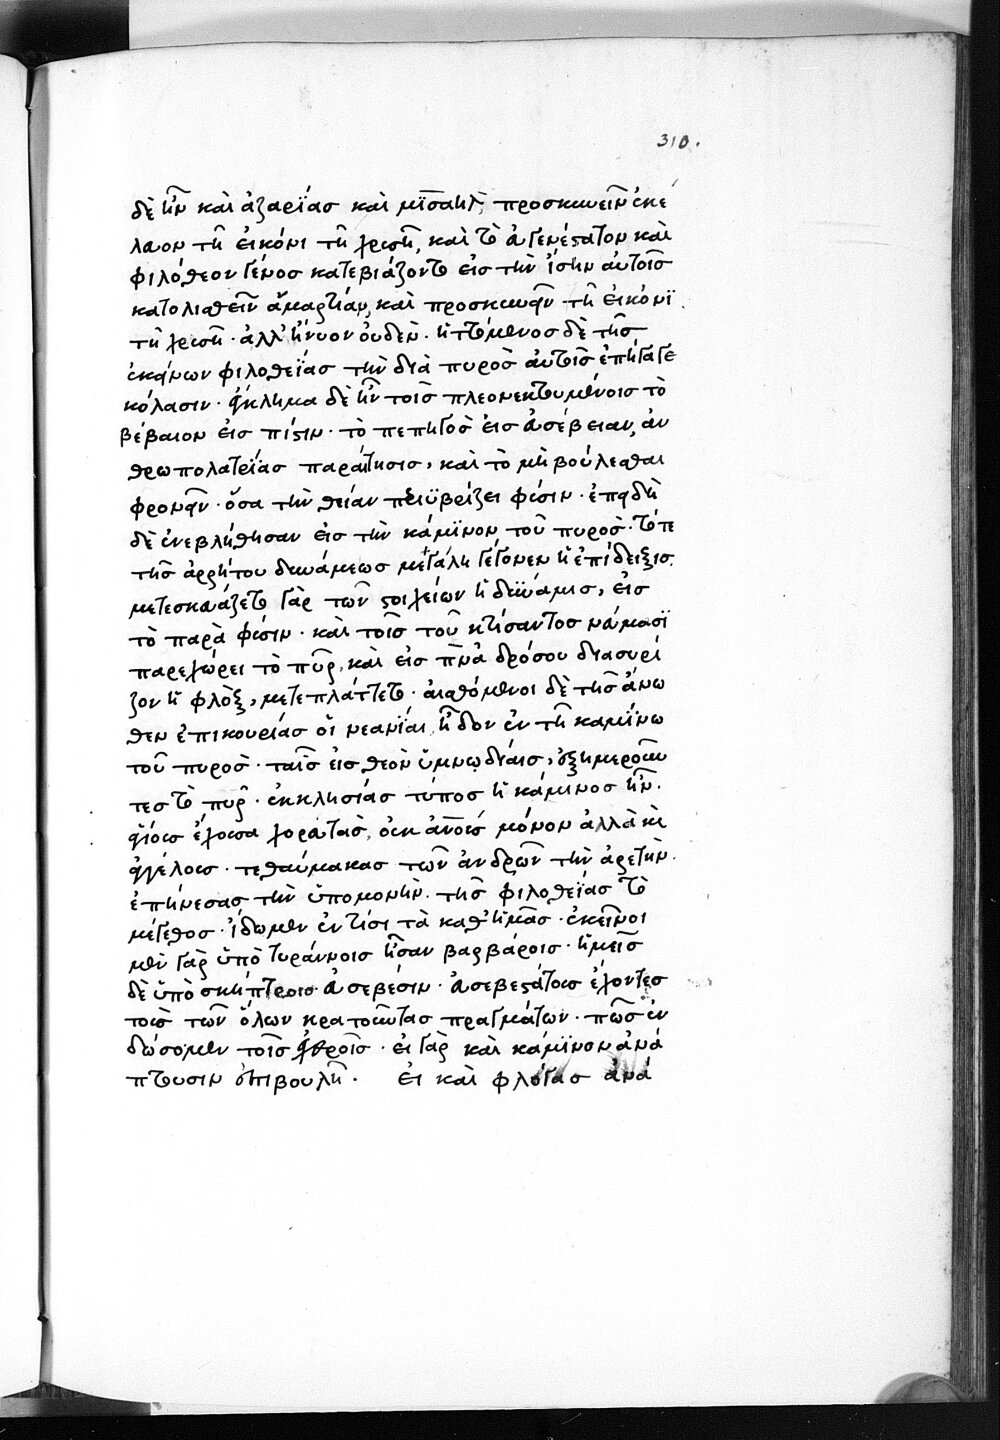 310.
δὲ ἦν καὶ ἀζαρΐας καὶ μϊσαὴλ, προσκυνεῖν ἐκέ
λευον τῆ εἰκόνι τῆ χρυσῆ, καὶ τὸ ἀγενέστατον καὶ
φιλόθεον γένος κατεβιάζοντο εἰς τὴν ἴσην αὐτοῖς
κατολισθεῖν ἁμαρτίαν, καὶ προσκυνεῖν τῆ εἰκόνϊ
τῆ χρυσῆ · ἀλλ' ἤνυον οὐδὲν · ἡττώμενος δὲ τῆς
ἐκείνων φιλοθεΐας τὴν διὰ πυρὸς αὐτοῖς ἐπήγαγε
κόλασιν · ἔγκλημα δὲ ἦν τοῖς πλεονεκτουμένοις τὸ
βέβαιον εἰς πίστιν · τὸ πεπηγὸς εἰς ἀσέβειαν, ἀν
θρωπολατρείας παραίτησις, καὶ τὸ μὴ βούλεσθαι
φρονεῖν · ὅσα τὴν θείαν περιϋβρίζει φύσιν · ἐπειδὴ
δὲ ἐνεβλήθησαν εἰς τὴν κάμϊνον τοῦ πυρὸς · τότε
τῆς ἀρρήτου δυνάμεως μεγάλη γέγονεν ἡ ἐπίδειξις.
μετεσκευάζετο γὰρ τῶν στοιχείων ἡ δύναμις, εἰς
τὸ παρὰ φύσιν · καὶ τοῖς τοῦ κτίσαντος νεύμασϊ
παρεχώρει τὸ πῦρ, καὶ εἰς πνα δρόσου διασυρί
ζον ἡ φλὸξ, μετεπλάττετο · αἰσθόμενοι δὲ τῆς ἄνω
θεν ἐπικουρίας οἱ νεανΐαι, ᾖδον ἐν τῆ καμΐνω
τοῦ πυρὸς · ταῖς εἰς θεὸν ὑμνῳδίαις, ἐξημεροῦν
τες τὸ πῦρ · ἐκκλησίας τύπος ἡ κάμινος ἦν.
ἐχουσα χορευτὰς, οὐκ ἀνους μόνον ἀλλὰ καὶ
ἀγγέλους · τεθαύμακας τῶν ἀνδρῶν τὴν ἀρετὴν.
ἐπήνεσας τὴν ὑπομονὴν · τῆς φιλοθεΐας τὸ
μέγεθος · ἴδωμεν ἐν τίσι τὰ καθ' ἡμᾶς · ἐκεῖνοι
μὲν γὰρ ὑπὸ τυράννοις ἦσαν βαρβάροις · ἡμεῖς
δὲ ὑπὸ σκήπτροις ἀσεβέσιν · ἀσεβεστάτους ἔχοντες
τοὺς τῶν ὅλων κρατοῦντας πραγμάτων · πῶς ἐν
δώσομεν τοῖς ἐχθροῖς · εἰ γὰρ καὶ κάμινον ἀνά
πτουσιν ἐπιβουλῆ · εἰ καὶ φλόγας ἀνά